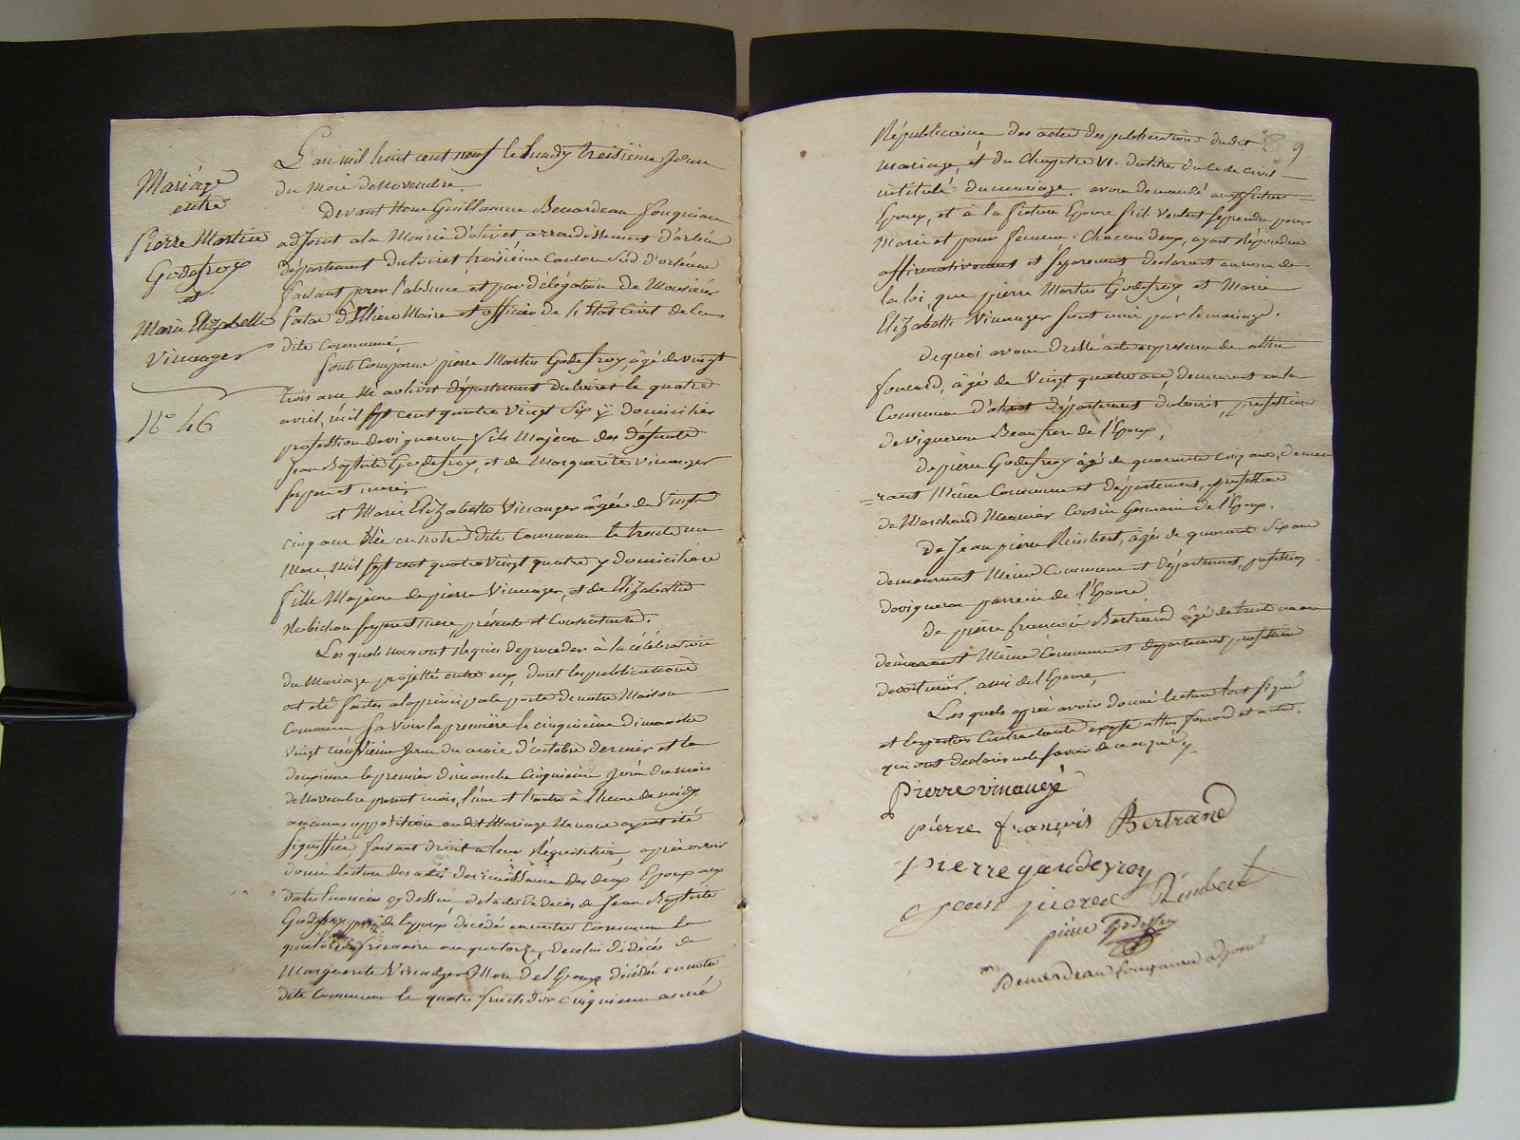 Mariage
entre
Pierre Martin
Godefroy
et
Marie Elizabette
Vinauger
N° 46
L'an mil huit cent neuf le lundy treizieme jour
du Mois de Novembre.
Devant Nous Guillaume Benardeau fougueau
adjoint a la Mairie d'olivet arrondissement d'orleans
departement du loiret troisieme Canton Sud d'orleans
faisant pour l'absence et par délégation de Monsieur
Maire et officier de l'état Civil de la
dite Commune,
Sont Comparus pierre Martin Godefroy, âgé de vingt
trois ans Né a olivet departement du loiret le quatre
avril, mil sept cent quatre vingt Six y domicilié
profession de vigneron fils Majeur des défunts
Jean Baptiste Godefroy, et de Marguerite Vinauger
ses pere et mere,
et Marie Elizabette Vinauger âgée de Vingt
cinq ans Née en notre dite Commune le trente un
Mars Mil sept cent quatre vingt quatre y domiciliée
fille Majeure de pierre Vinauger, et de Elizabette
Robichon ses pere et mere, présents et Consentants.
Les quels nous ont requis de proceder à la célébration
du Mariage projetté entre eux, dont les publications
ont été faites a la principale porte de notre Maison
Commune, Savoir la premiere le cinquieme dimanche
vingt neufvieme jour du mois d'octobre dernier et la
deuxieme le premier dimanche Cinquieme jour du mois
de Novembre present mois, l'une et l'autre à l'heure de midy
aucune opposition audit Mariage Ne nous ayant été
Signiffiée faisant droit a leur Réquisition, après avoir
donné lecture des actes de naissance des deux Epoux aux
dates énoncées cy dessus, de l'acte de décès de Jean Baptiste
Godefroy pere de l'epoux, décédé en notre Commune le
frimaire an quatorze, de celui de décès de
Marguerite Vinauger Mere de l'Epoux décédée en notre
dite Commune le quatre fructidor cinquieme année
9
Républicaine des actes des publications dudit
mariage, et du Chapitre VI. du titre du Code Civil
intitulé du mariage. avons demandé au futur
Epoux, et à la future Epouse s'ils veulent se prendre pour
Mari et pour femme. Chacun d'eux, ayant répondu
affirmativement et séparement declarons au nom de
la loi, que pierre Martin Godefroy et Marie
Elizabette Vinauger sont unis par le mariage.
de quoi avons dressé acte en presence de
foucard, âgé de Vingt quatre ans, demeurant en la
Commune d'olivet Département du loiret, profession
de vigneron Beau frere de l'Epoux,
de pierre Godefroy âgé de quarante cinq ans, demeu
=rant Même Commune et Département, profession
de Marchand Meunier Cousin Germain de l'Epoux.
de Jean pierre Rimbert, âgé de quarante Six ans
demeurant Même Commune et Département, profession
de vigneron parrein de l'Epouse
de pierre françois Bertrand âgé de trente un ans
demeurant Même Commune et departement profession
de voiturier, ami de l'Epouse,
Les quels après avoir donné lecture l'ont signé
et les parties Contractantes excepté foucard et
qui ont declaré ne le savoir de ce enquis.
Pierre vinaugé
pierre françois Bertrand
pierre gaudeyroy
Jean pierre Rimbert
pierre Godefroy
Benardeau fougueau adjoint